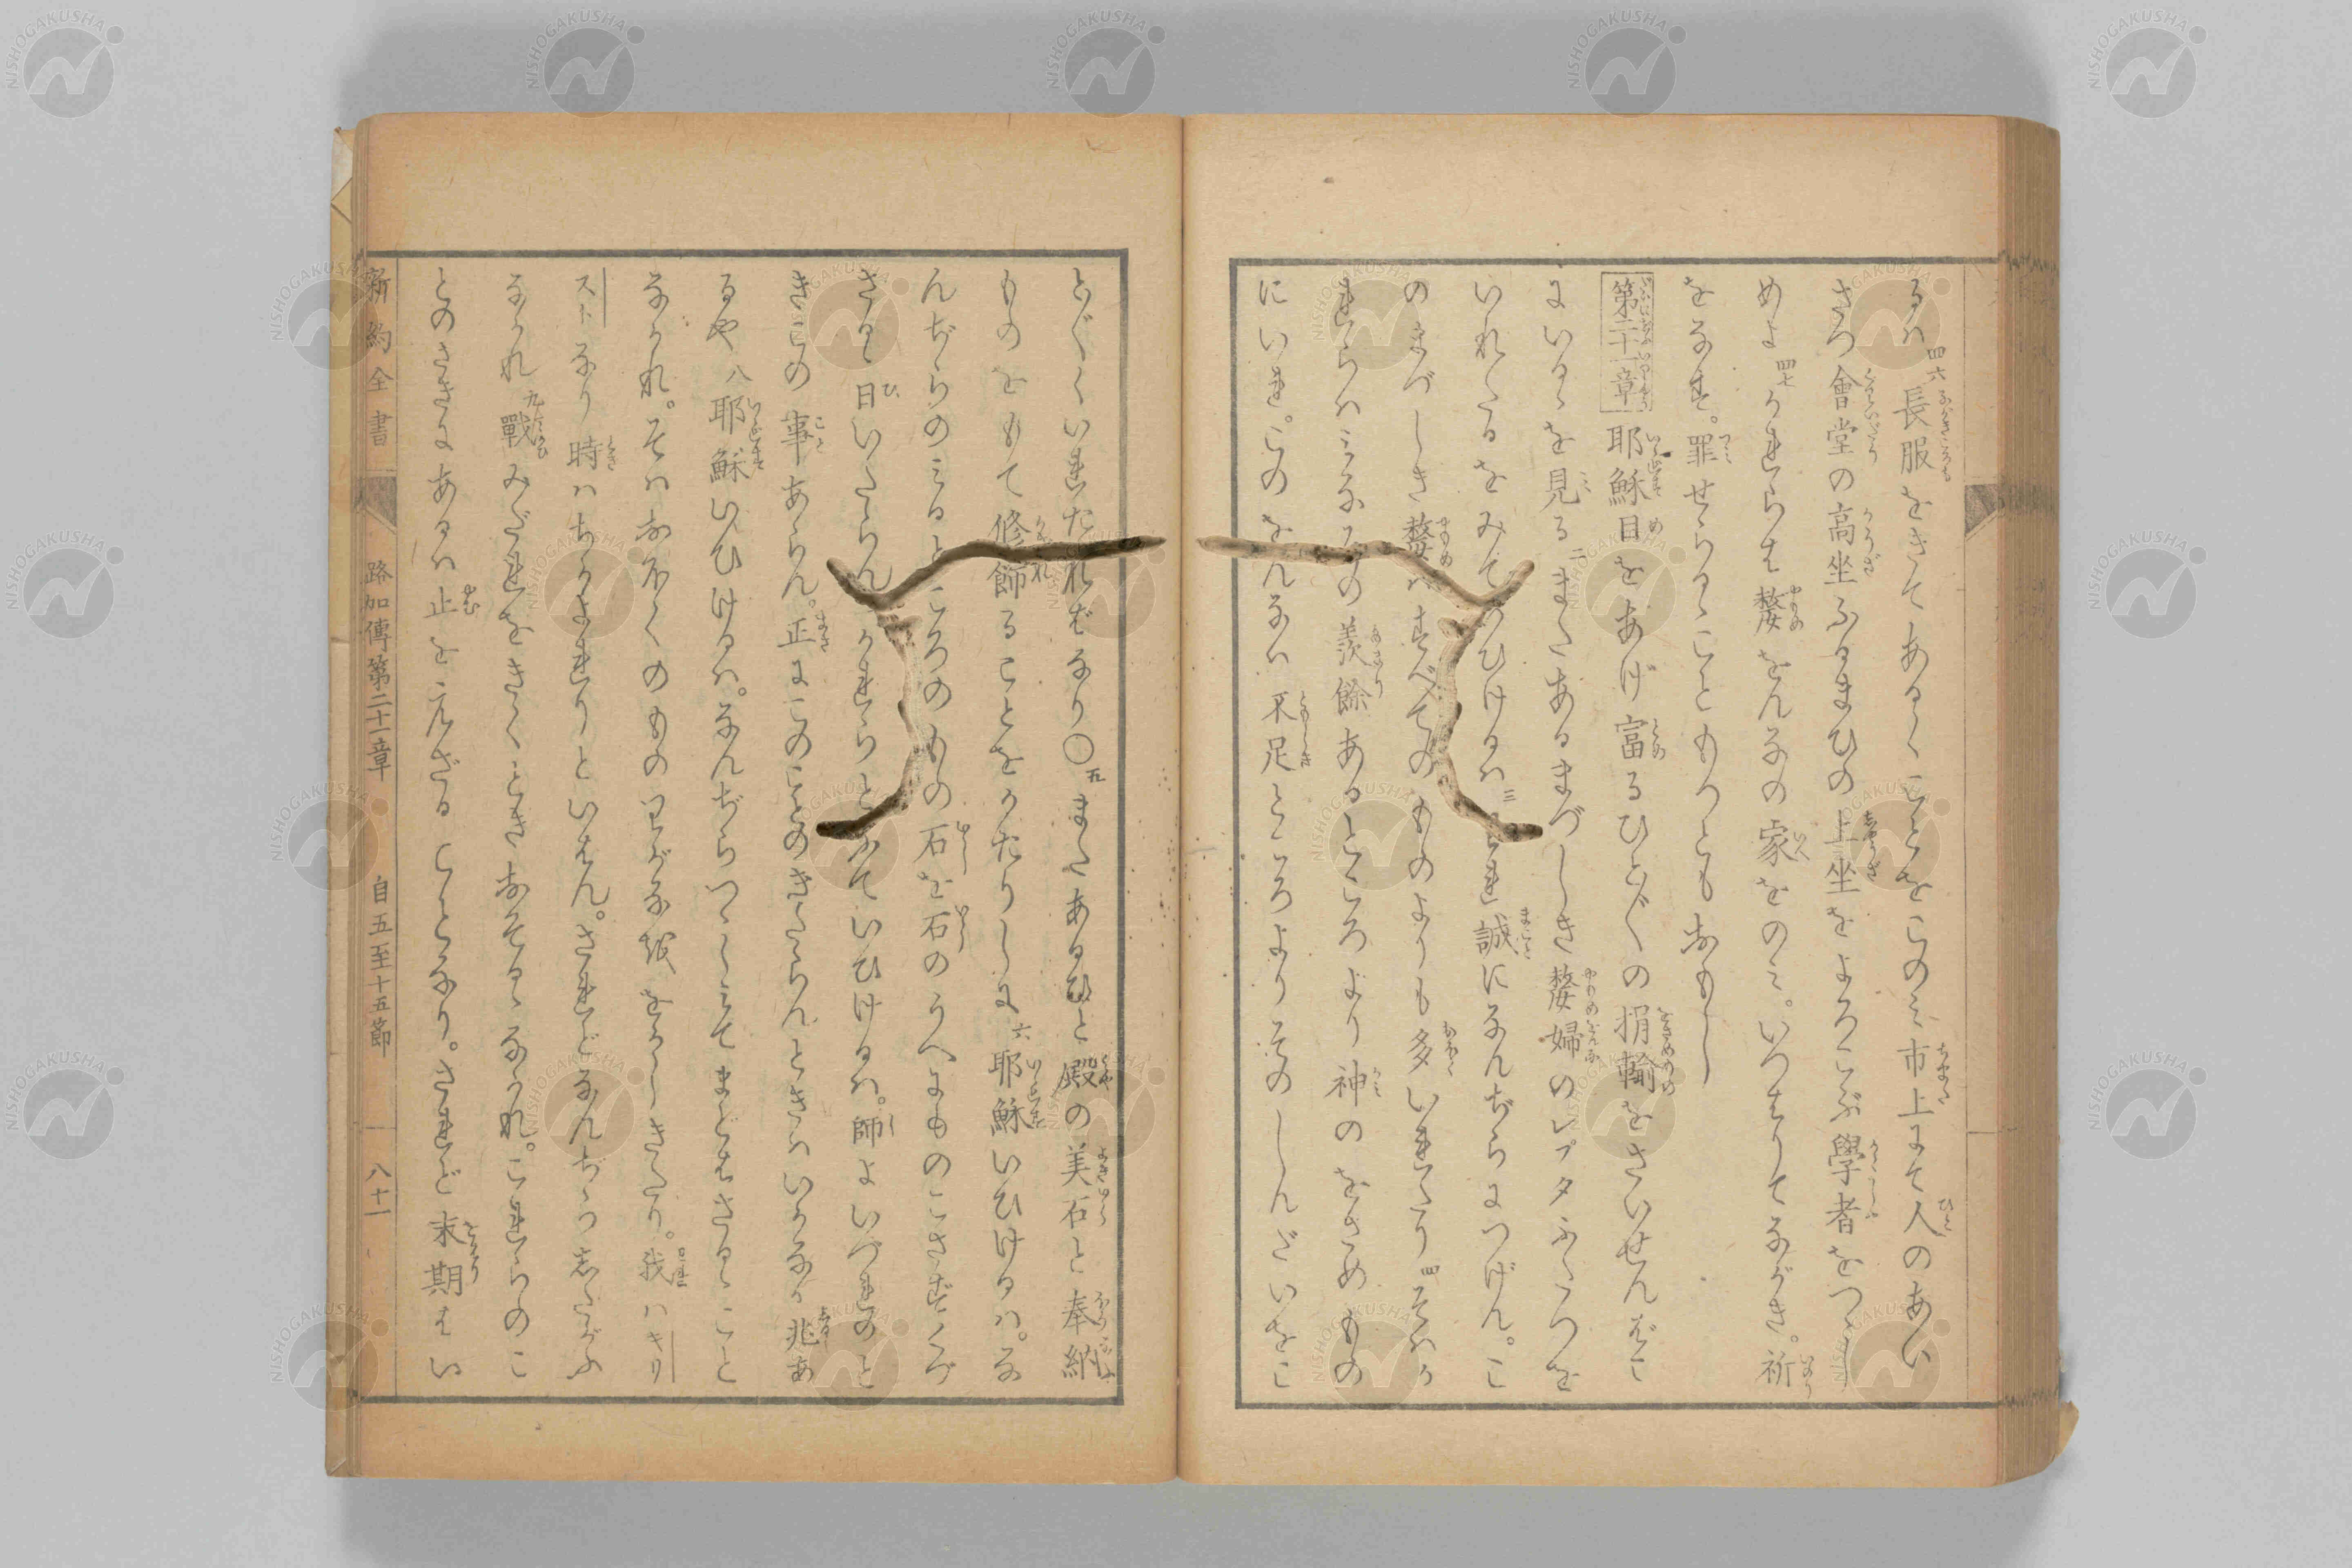 るハ四六長服をきてあるくことをこのミ市上にて人のあい
さつ會堂の高坐ふるまひの上坐をよろこぶ學者をつゝし
めよ四七かれらは嫠をんなの家をのミ。いつはりてながき。祈
をなす。罪せらるゝこともつともおもし
第二十一章 耶穌目をあげ富るひと〴〵の捐輸をさいせんばこ
にいるゝを見る二またあるまづしき嫠婦のレプタふたつを
いれたるをみていひけるハ三われ誠になんぢらにつげん。こ
のまづしき嫠ハすべてのものよりも多いれたり四そハか
れらハミなその羨餘あるところより神のをさめもの
にいれ。このをんなハ不足ところよりそのしんだいをこ
と〴〵くいれたればなり〇五またあるひと殿の美石と奉納
ものをもて修飾ることをかたりしに六耶穌いひけるハ。な
んぢらのミるところのもの石を石のうへにものこさずくづ
さるゝ日いたらん かれらとふていひけるハ。師よいづれのと
きこの事あらん。正にこのことのきたらんときハいかなる兆あ
るや八耶穌いひけるハ。なんぢらつゝしミてまどはさるゝこと
なかれ。そハおほくのものわがな をかしきたり。我ハキリ
ストなり時ハちかよれりといはん。されどなんぢらしたがふ
なかれ九戰みだれをきくときおそるゝなかれ。これらのこ
とのさきにあるハ止をえざることなり。されど末期はい
新約全書 路加傳第二十一章 自五至十五節 八十一
NISHOGAKUSHA